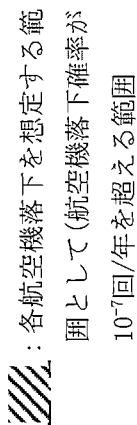 ：各航空機落下を想定する範
囲として(航空機落下確率が
10⁻⁷回/年を超える範囲